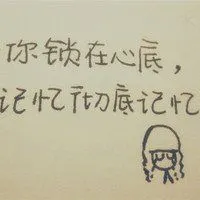 你锁在心底，
记忆彻底记忆